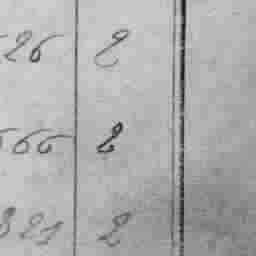 526 2
566 2
321 2